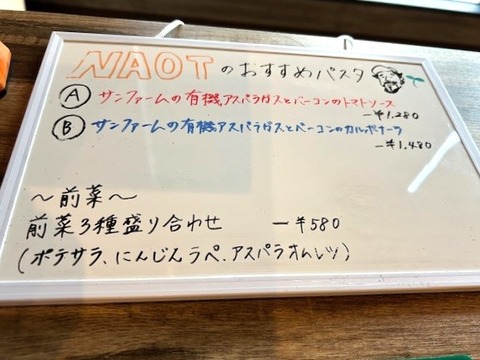 NAOTのおすすめパスタ
Ⓐ サンファームの有機アスパラガスとベーコンのトマトソース
ー¥1,280
Ⓑ サンファームの有機アスパラガスとベーコンのカルボナーラ
ー¥1,480
〜前菜〜
前菜3種盛り合わせ ー¥580
(ポテサラ、にんじんラペ、アスパラオムレツ)